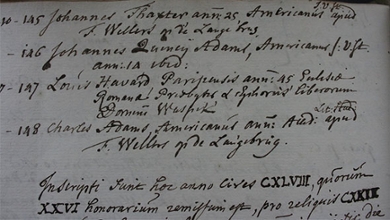 J. U. St.
10 - 145 Johannes Thaxter ann: 25, Americanus apud
F. Wellers op de Langebrug.
- 146 Johannes Quincy Adams, Americanus J. U. St
ann: 14 ibid:
7 - 147 Louis Havard Parisiensis ann: 45 Eclesiæ
Romanæ Presbyter & Ephorus Liberorum
Domini
Lit: Stud:
- 148 Charles Adams, Americanus ann: Acad: apud
F. Wellers op de Langebrug.
Inscripti sunt hoc anno Cives CXLVIII, quorum
XXVI honorarium remissum est, pro reliquis CXXII